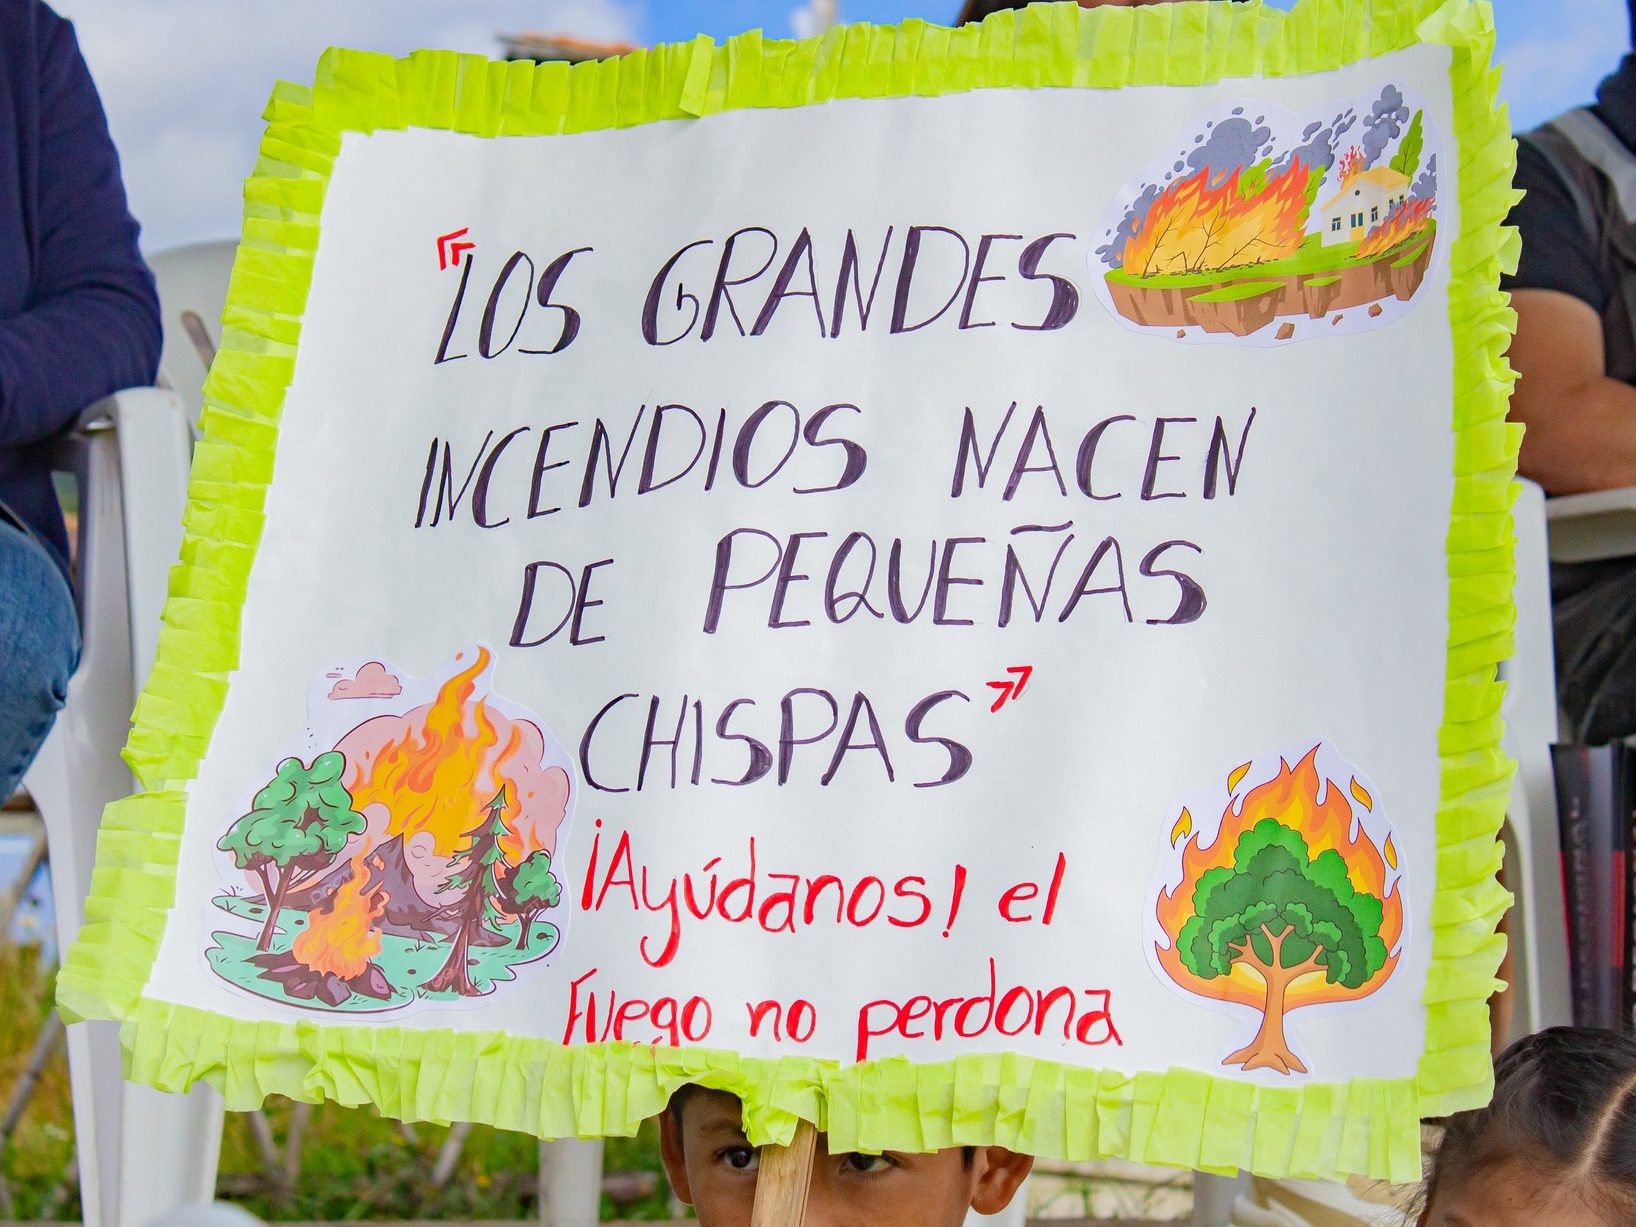 "LOS GRANDES
INCENDIOS NACEN
DE PEQUEÑAS
CHISPAS"
¡Ayúdanos! el
Fuego no perdona